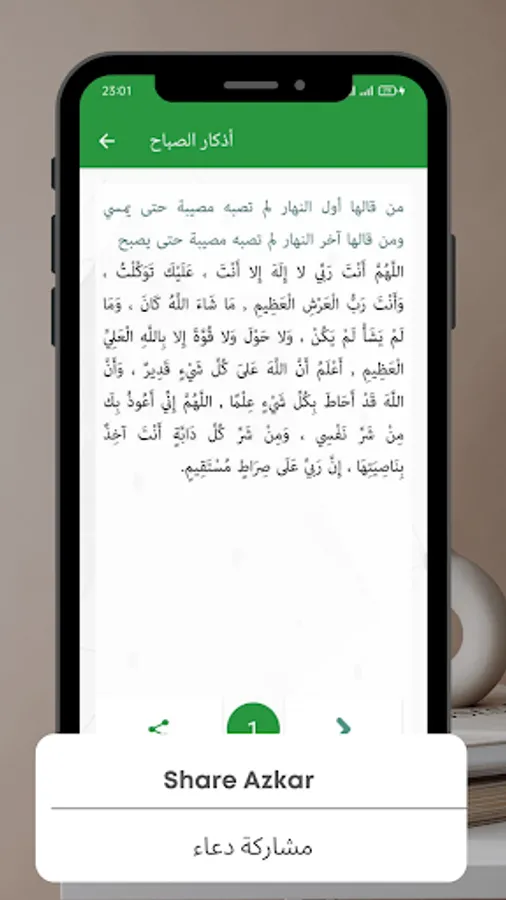 23:01
أذكار الصباح
من قالها أول النهار لم تصبه مصيبة حتى يمسي
ومن قالها آخر النهار لم تصبه مصيبة حتى يصبح
اللَّهُمَّ أَنْتَ رَبِّي لا إِلَهَ إِلا أَنْتَ ، عَلَيْكَ تَوَكَّلْتُ ،
وَأَنْتَ رَبُّ الْعَرْشِ الْعَظِيمِ , مَا شَاءَ اللَّهُ كَانَ ، وَمَا
لَمْ يَشَأْ لَمْ يَكُنْ ، وَلا حَوْلَ وَلا قُوَّةَ إِلا بِاللَّهِ الْعَلِيِّ
الْعَظِيمِ , أَعْلَمُ أَنَّ اللَّهَ عَلىَ كُلِّ شَيْءٍ قَدِيرٌ ، وَأَنَّ
اللَّهَ قَدْ أَحَاطَ بِكُلِّ شَيْءٍ عِلْمًا , اللَّهُمَّ إِنِّي أَعُوذُ بِكَ
مِنْ شَرِّ نَفْسِي ، وَمِنْ شَرِّ كُلِّ دَابَّةٍ أَنْتَ آخِذٌ
بِنَاصِيَتِهَا ، إِنَّ رَبِّي عَلَى صِرَاطٍ مُسْتَقِيمٍ.
1
Share Azkar
مشاركة دعاء